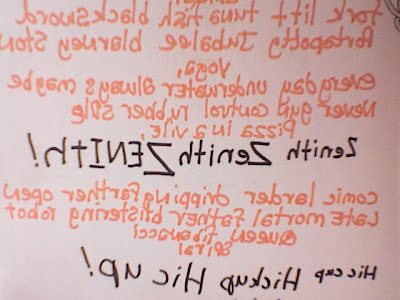 fork lift tuna fish blacksword
Portapotty Jubalee blarney Ston
Yoga,
everyday underwater always maybe
Never gun control rubber sole
Pizza in a vile,
Zenith Zenith ZENIth!
comic larder dripping farther open
Late mortal father blistering robot
Queen fibonacci
spiral
Hiccup Hickup Hic up!